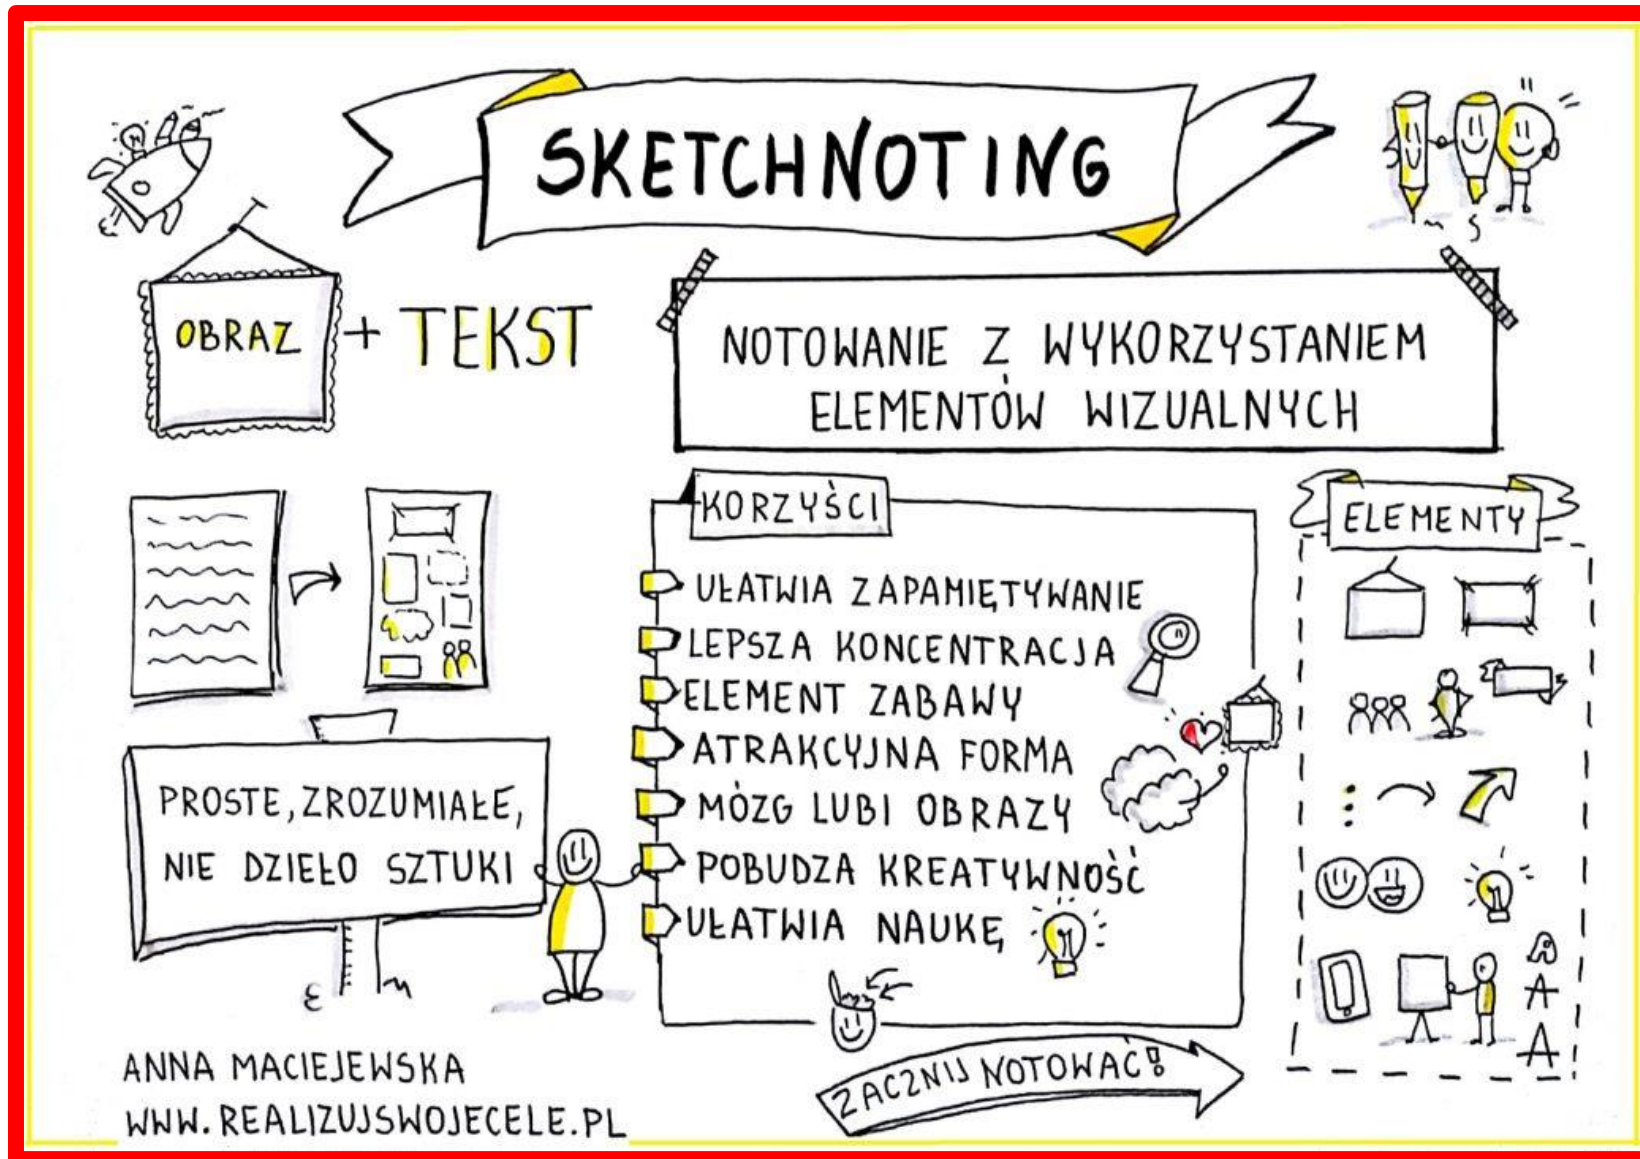 SKETCHNOTING
OBRAZ + TEKST
NOTOWANIE Z WYKORZYSTANIEM
ELEMENTÓW WIZUALNYCH
PROSTE, ZROZUMIAŁE,
NIE DZIEŁO SZTUKI
KORZYŚCI
UŁATWIA ZAPAMIĘTYWANIE
LEPSZA KONCENTRACJA
ELEMENT ZABAWY
ATRAKCYJNA FORMA
MÓZG LUBI OBRAZY
POBUDZA KREATYWNOŚĆ
UŁATWIA NAUKĘ
ELEMENTY
A
A
A
ZACZNIJ NOTOWAĆ!
ANNA MACIEJEWSKA
WWW.REALIZUJSWOJECELE.PL